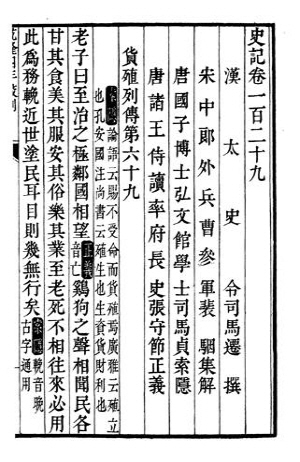 史記卷一百二十九
漢太史令司馬遷撰
宋中郞外兵曹參軍裴駰集解
唐國子博士弘文館學士司馬貞索隱
唐諸王侍讀率府長史張守節正義
貨殖列傳第六十九
索隱論語云賜不受命而貨殖焉廣雅云殖立
也孔安國注尚書云殖生也生資貨財利也
老子曰至治之極鄰國相望音亡正義雞狗之聲相聞民各
甘其食美其服安其俗樂其業至老死不相往來必用
此爲務輓近世塗民耳目則幾無行矣索隱輓音晚古字通用